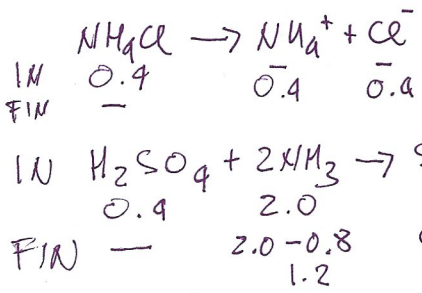 NH4Cl → NH4+ + Cl-
IN 0.4 - -
FIN - 0.4 0.4
IN H2SO4 + 2NH3 →
0.4 2.0
FIN - 2.0-0.8
1.2